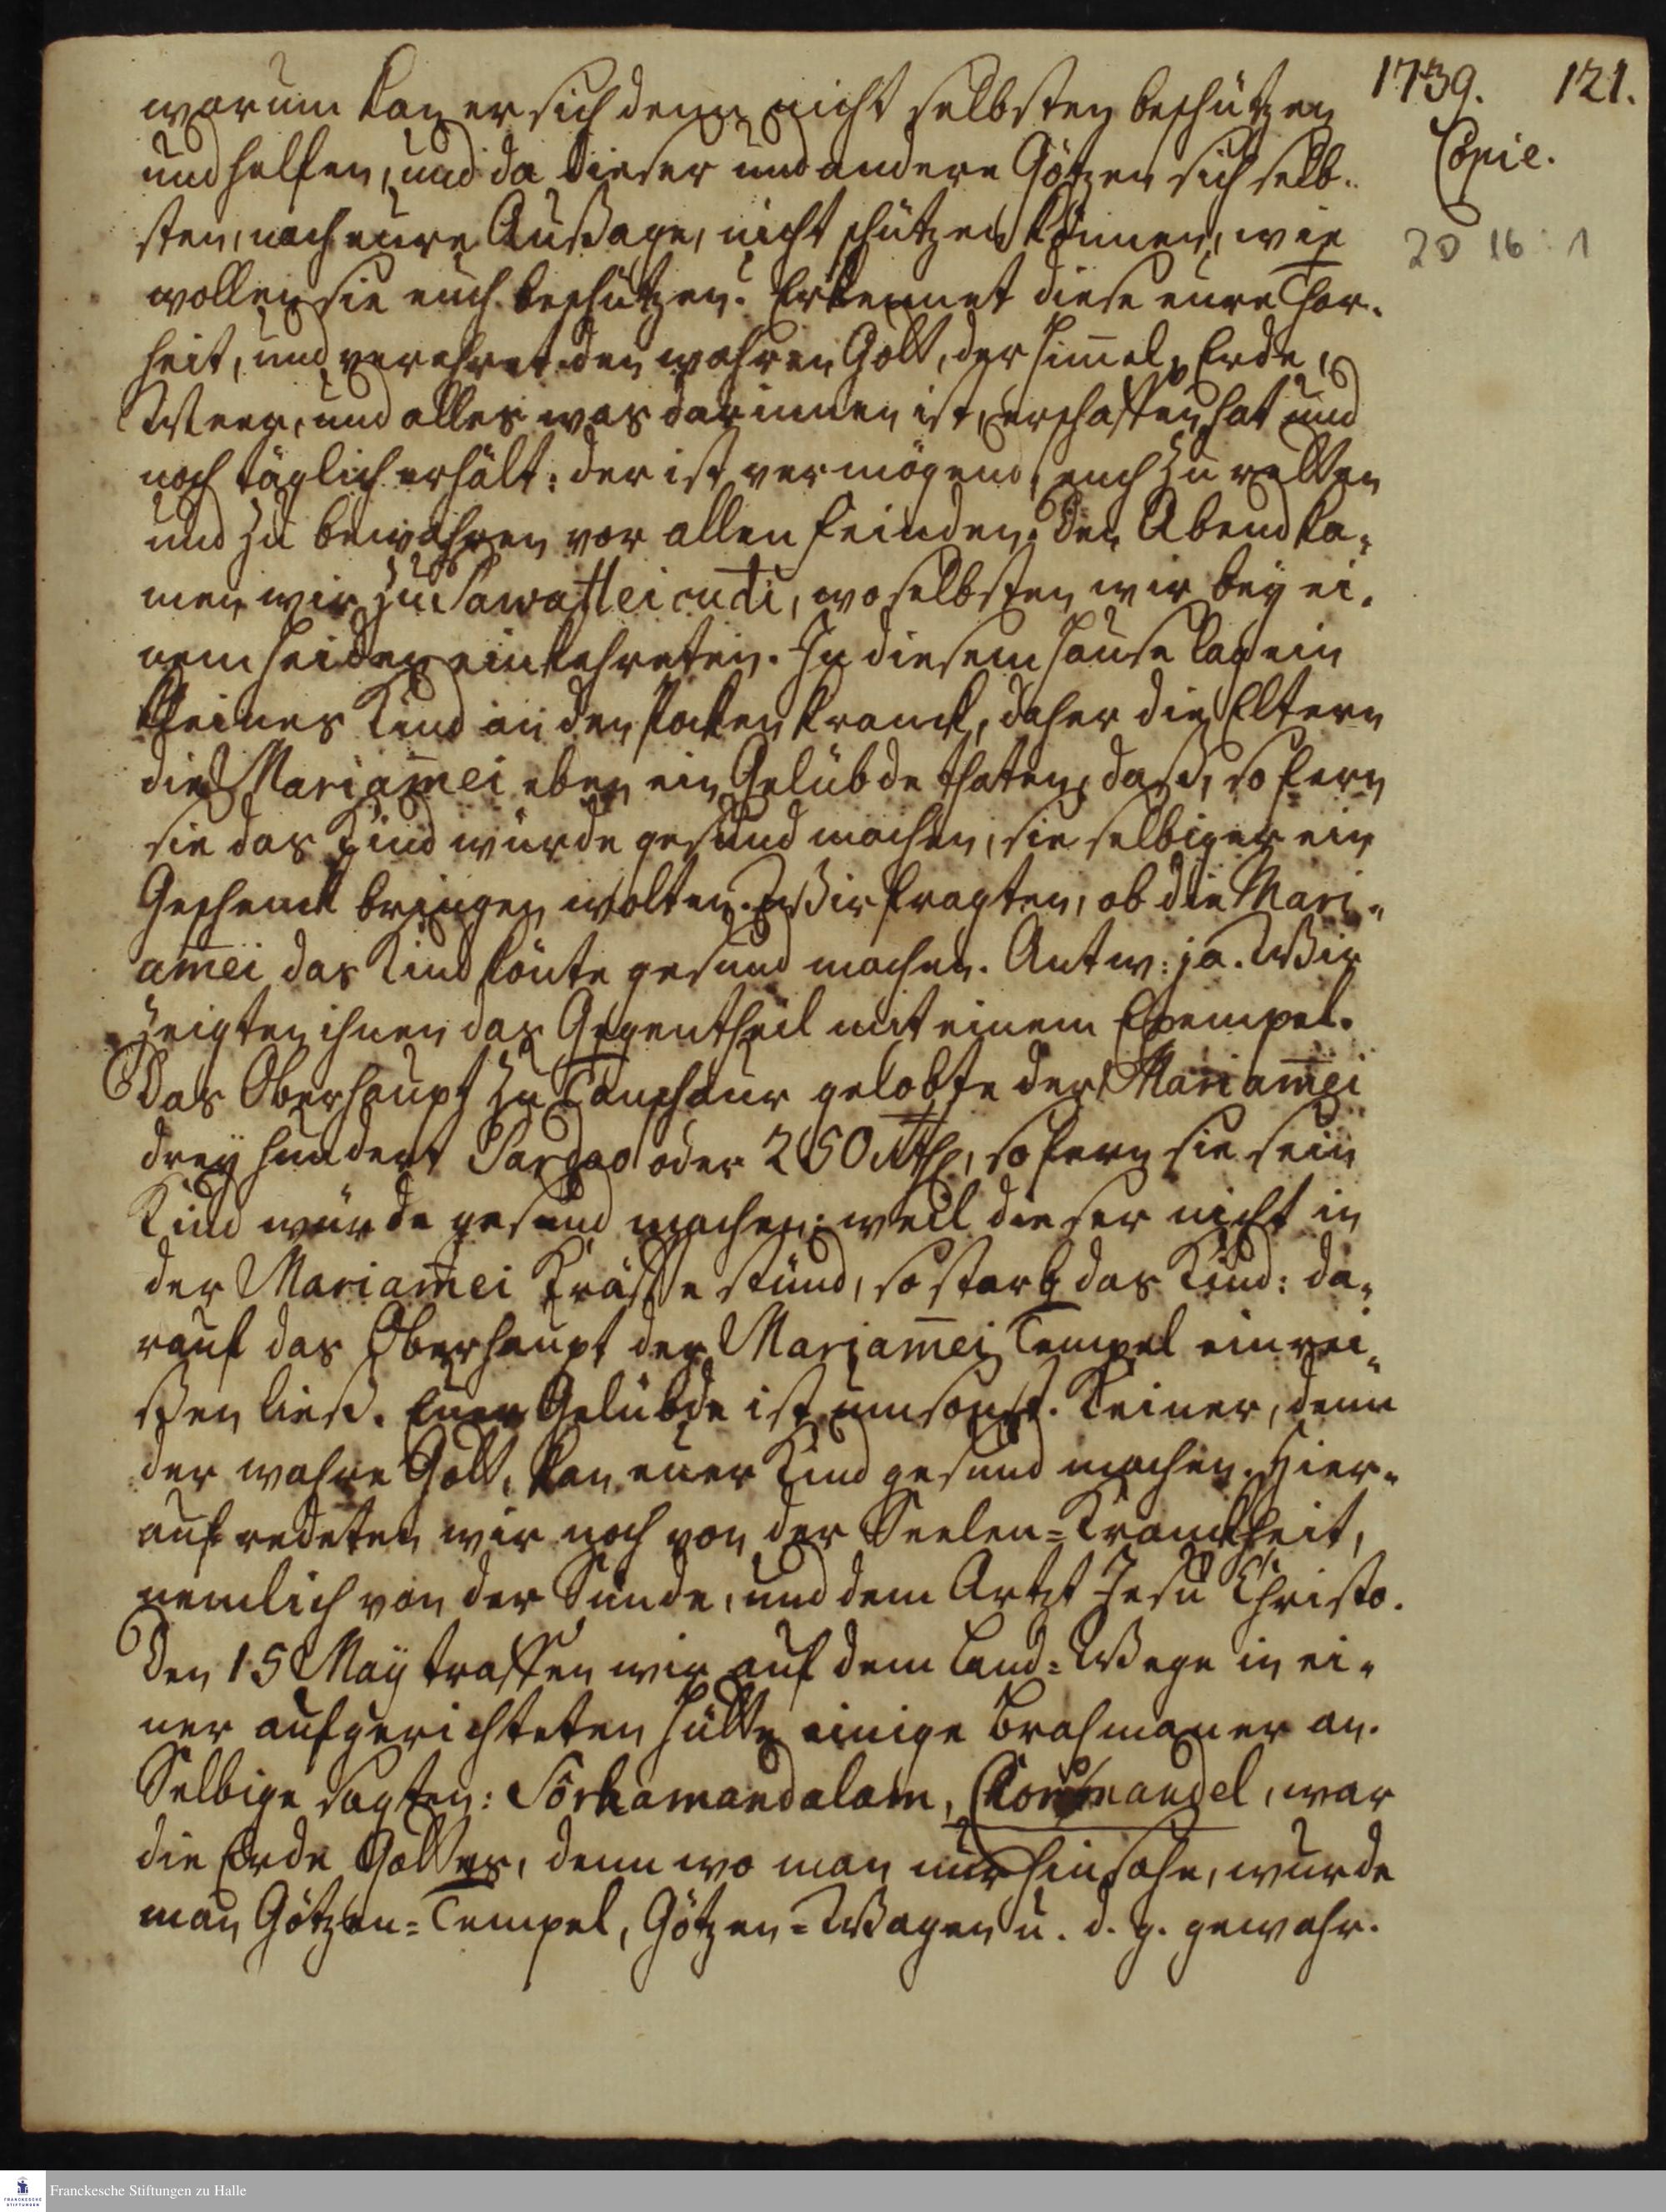 1739. 121.
Copie.
20 16 : 1
warum kan er sich denn nicht selbsten beschützen
und helfen, und da dieser und andere Götzen sich selb-
sten, nach eure Außage, nicht schützen können, wie
wollen sie euch beschützen? Erkennet diese eure Thor-
heit, und verehret den wahren Gott, der Him̄el, Erde,
Meer, und alles was darinnen ist, erschaffen hat und
noch täglich erhält: der ist vermögend, euch zu retten
und zu bewahren vor allen Feinden. Den Abend ka-
men wir zu Sawattleicudi, woselbsten wir bey ei-
nem Heiden einkehreten. In diesem Hause lag ein
kleines Kind an den Pocken kranck, daher die Eltern
die Mariam̄ei eben ein Gelübde thaten, daß, sofern
sie das Kind würde gesund machen, sie selbiger ein
Geschenck bringen wolten. Wir fragten, ob die Mari-
am̄ei das Kind könte gesund machen. Antw: ja. Wir
zeigten ihnen das Gegentheil mit einem Exempel.
Das Oberhaupt zu Tanschaur gelobte der Mariam̄ei
drey hundert Pardao oder 250 Rthl, sofern sie sein
Kind würde gesund machen: weil dieser nicht in
der Mariam̄ei Kräffte stund, so starb das Kind: da-
rauf das Oberhaupt der Mariam̄ei Tempel einrei-
ßen ließ. Euer Gelübde ist umsonst. Keiner, denn
der wahre Gott, kan euer Kind gesund machen. Hier-
auf redeten wir noch von der Seelen-Kranckheit,
nemlich von der Sünde, und dem Artzt Jesu Christo.
Den 15 May traffen wir auf dem Land-Wege in ei-
ner aufgerichteten Hütte einige Brahmaner an.
Selbige sagten: Sôrhamandalam, Coromandel, war
die Erde Gottes, denn wo man nur hinsahe, wurde
man Götzen-Tempel, Götzen-Wagen u. d. g. gewahr.
Franckesche Stiftungen zu Halle